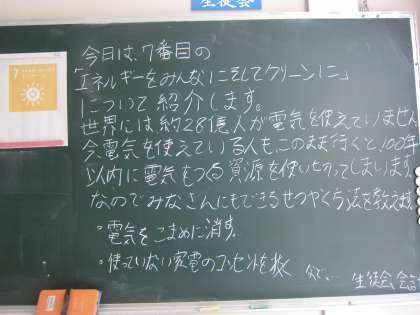 生徒会
今日は、7番目の
「エネルギーをみんなにそしてクリーンに」
について紹介します。
世界には約28億人が電気を使えていません
今、電気を使えている人もこのまま行くと、100年
以内に電気もつくる資源を使い切ってしまいます
なのでみなさんにもできるせつやく方法を教えます
・電気をこまめに消す。
・使っていない家電のコンセントを抜く
生徒会
7